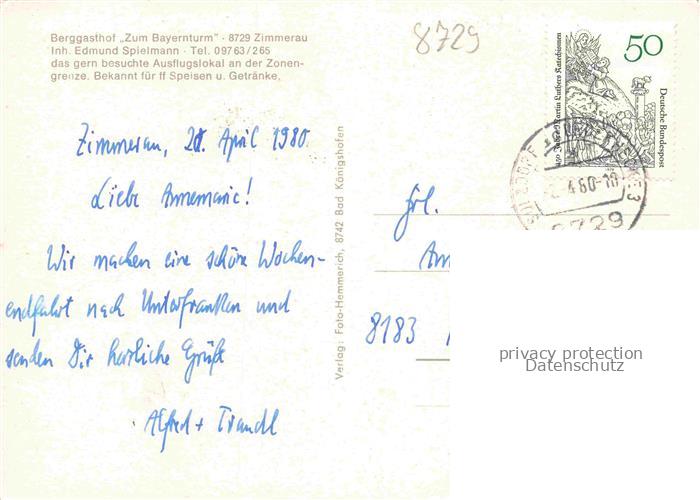 Berggasthof „Zum Bayernturm" · 8729 Zimmerau
Inh. Edmund Spielmann · Tel. 09763/265
das gern besuchte Ausflugslokal an der Zonen-
grenze. Bekannt für ff Speisen u. Getränke.
8729
50
Deutsche Bundespost
450 Jahre Martin Luthers Katechismen
Zimmerau, 20. April 1980.
Liebe Annemarie!
Wir machen eine schöne Wochen-
endfahrt nach Unterfranken und
senden Dir herzliche Grüße
Alfred + Traudl
Verlag: Foto-Hemmerich, 8742 Bad Königshofen
8729
Frl.
An
8183
privacy protection
Datenschutz